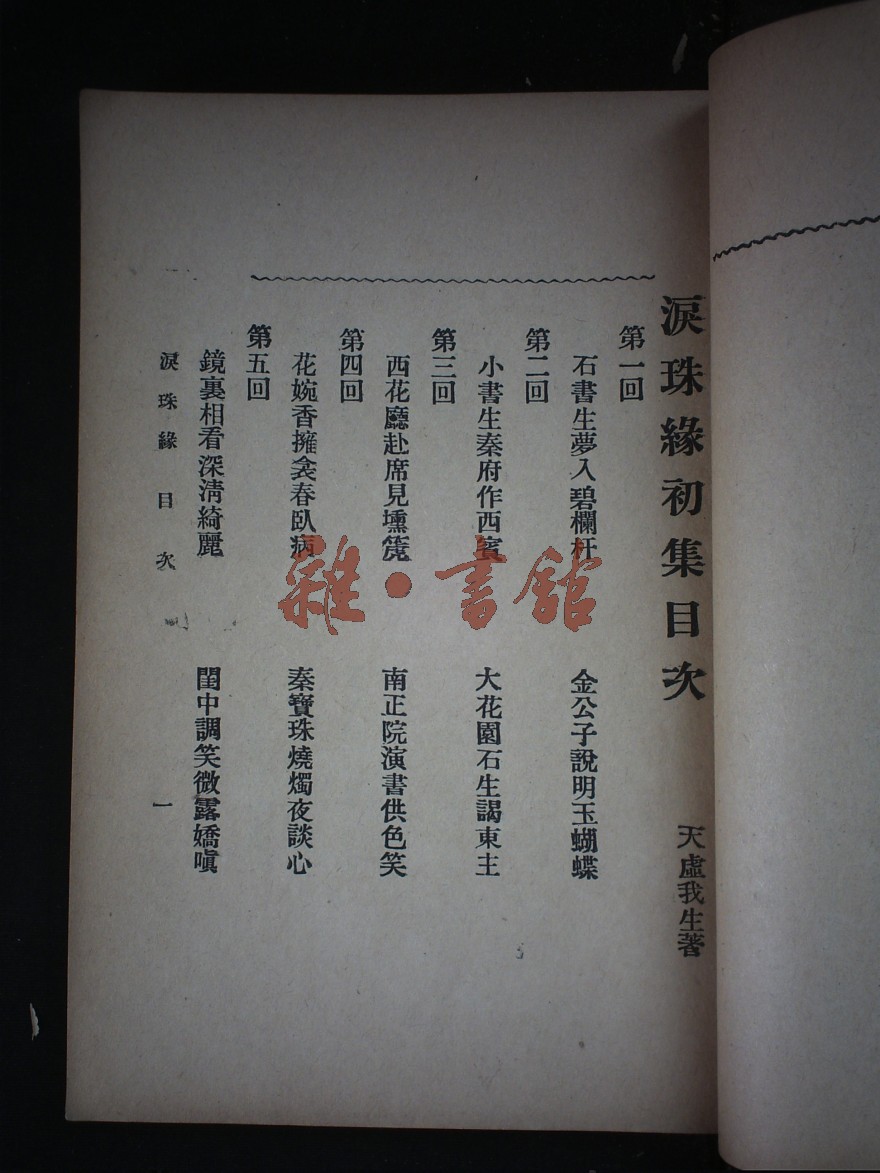 淚珠緣初集目次
天虛我生著
第一回
石書生夢入碧欄杆　金公子說明玉蝴蝶
第二回
小書生秦府作西賓　大花園石生謁東主
第三回
西花廳赴席見壎篪　南正院演書供色笑
第四回
花婉香擁衾春臥病　秦寶珠燒燭夜談心
第五回
鏡裏相看深淸綺麗　閨中調笑微露嬌嗔
淚珠緣　目次
一
雜·書館